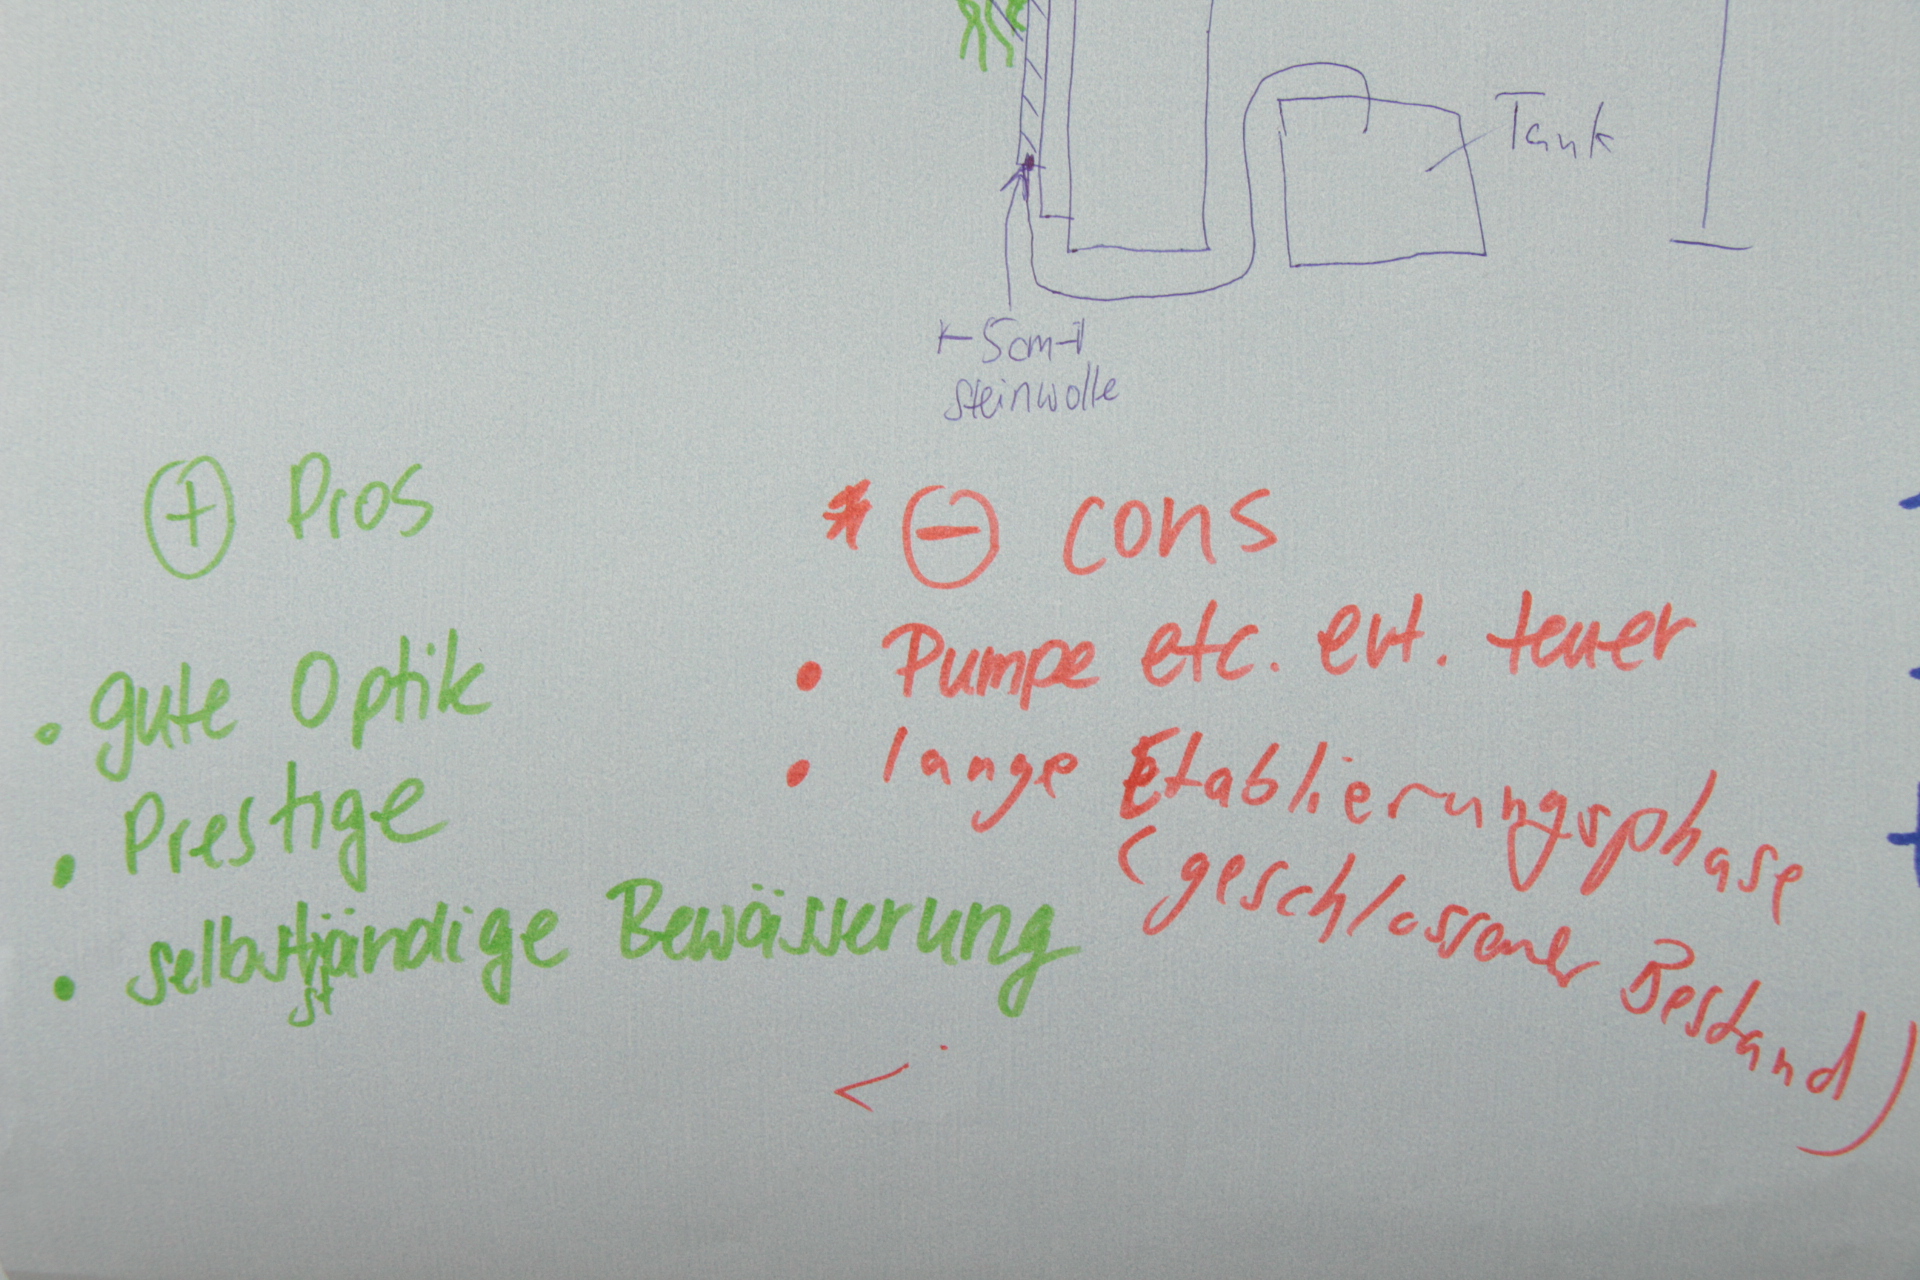 Tank
5cm
Steinwolle
+ Pros
• gute Optik
• Prestige
• selbstständige Bewässerung
* - cons
• Pumpe etc. evt. teuer
• lange Etablierungsphase
(geschlossener Bestand)